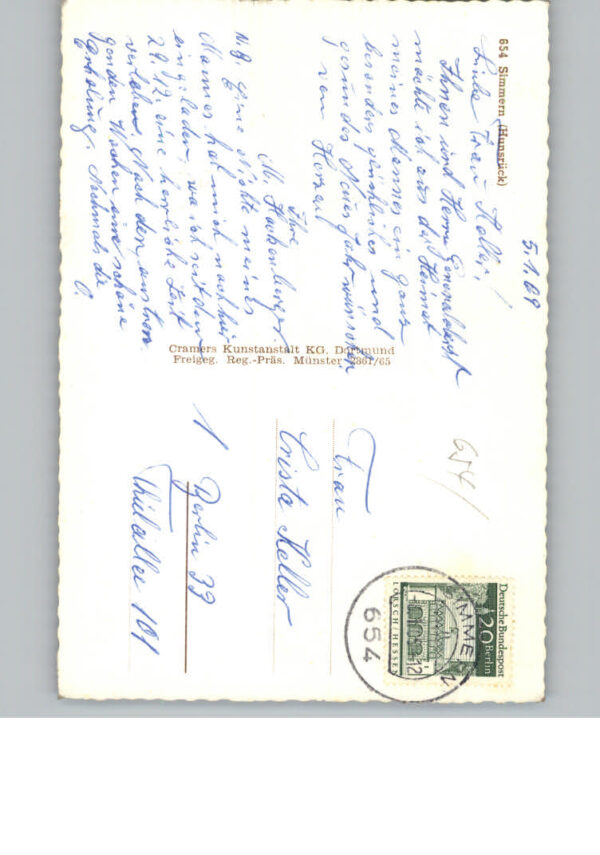 654 Simmern (Hunsrück)
5.1.69
Liebe Frau Keller,
Ihnen und Herrn
möchte ich aus der Heimat
meines Mannes ein ganz
besonders und
gesundes Neues Jahr wünschen
von Herzen
Ihre
M.
N.B. Eine Nichte meines
Mannes hat mich nach hier
eingeladen, wo ich seit dem
29.12. eine herrliche Zeit
verlebe. Nach den
Wochen eine schöne
Erholung. Nochmals die
O.
Cramers Kunstanstalt KG, Dortmund
Freigeg. Reg.-Präs. Münster 2861/65
Frau
Crista Keller
1 Berlin 33
Thielallee 101
654/
Deutsche Bundespost
20 Berlin
LORSCH/HESSEN
SIMMERN
12
654